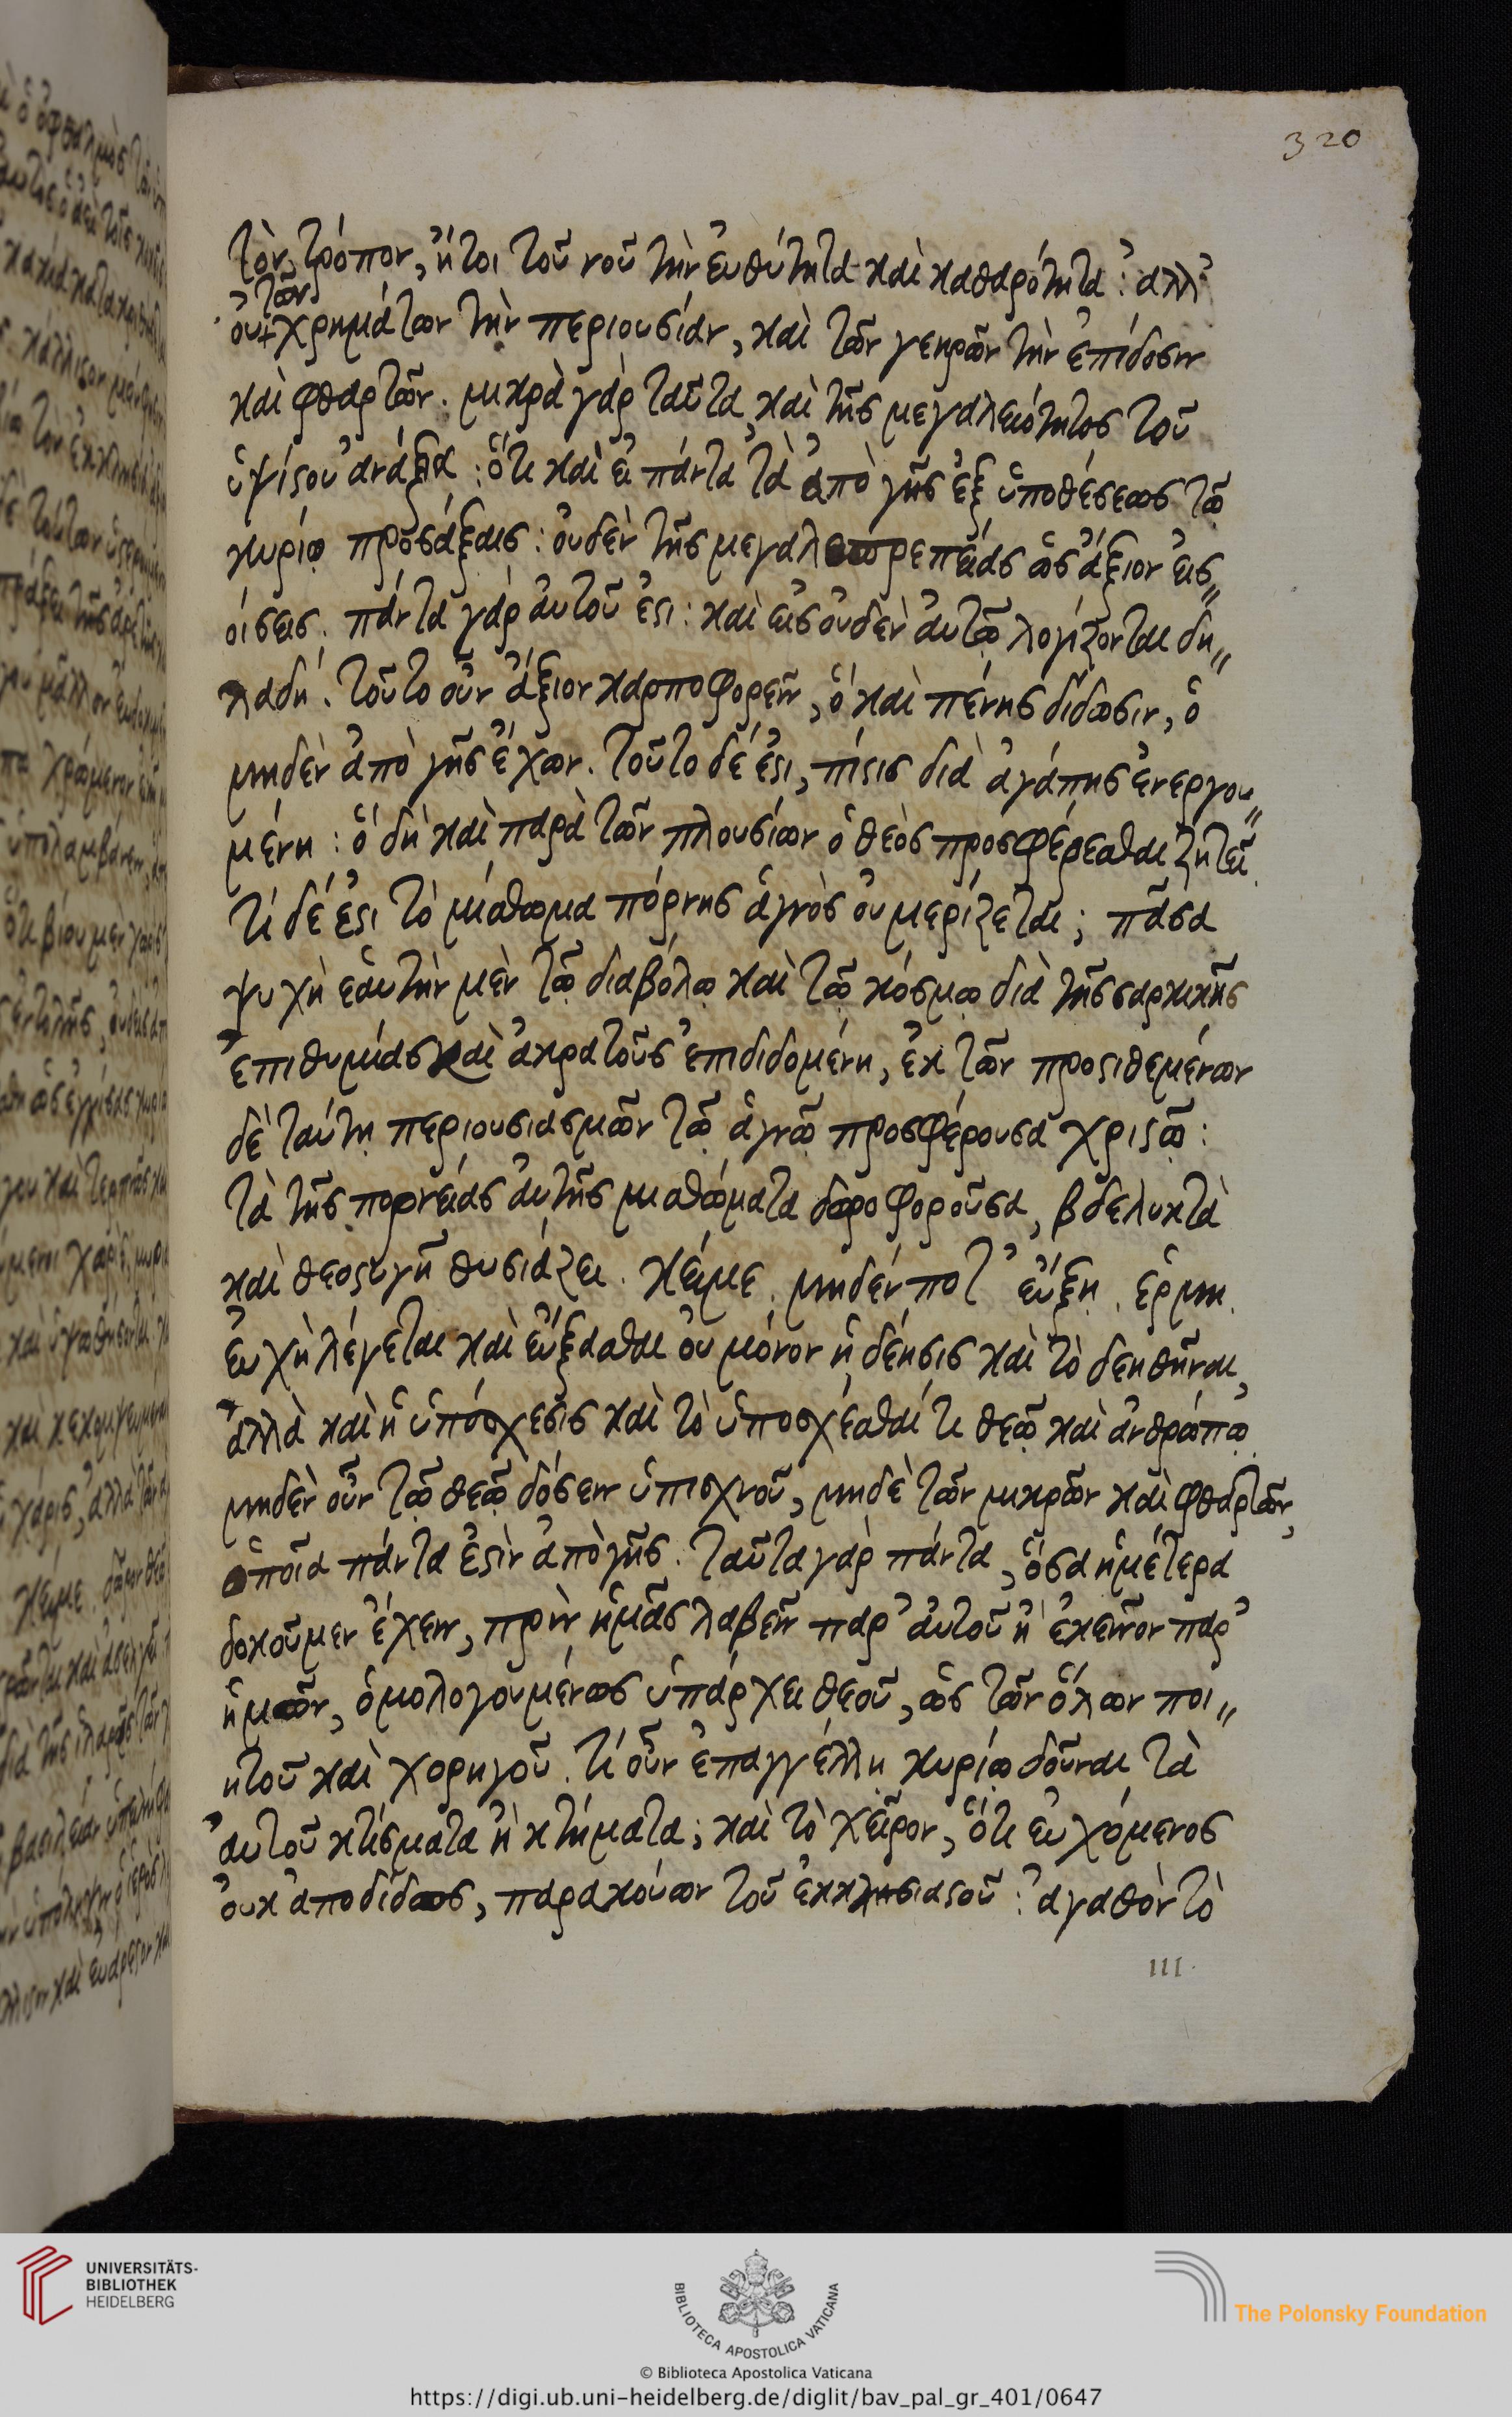 320
τὸν τρόπον, ἤτοι τοῦ νοῦ τὴν εὐθύτητα καὶ καθαρότητα: ἀλλ'
οὐ τῶν χρημάτων τὴν περιουσίαν, καὶ τῶν γεηρῶν τὴν ἐπίδοσιν
καὶ φθαρτῶν. μικρὰ γὰρ ταῦτα, καὶ τῆς μεγαλειότητος τοῦ
ὑψίστου ἀνάξια: ὅτι καὶ εἰ πάντα τὰ ἀπὸ γῆς ἐξ ὑποθέσεως τῶ
κυρίῳ προσάξεις: οὐδὲν τῆς μεγαλοπρεπείας ὡς ἄξιον εἰσ〃
οίσεις. πάντα γὰρ αὐτοῦ ἐστι: καὶ εἰς οὐδὲν αὐτῶ λογίζονται δη〃
λαδή. τοῦτο οὖν ἄξιον καρποφορεῖν, ὃ καὶ πένης δίδωσιν, ὁ
μηδὲν ἀπὸ γῆς ἔχων. τοῦτο δέ ἐστι, πίστις διὰ ἀγάπης ἐνεργου〃
μένη: ὃ δὴ καὶ παρὰ τῶν πλουσίων ὁ θεὸς προσφέρεσθαι ζητεῖ.
τί δέ ἐστι τὸ μίσθωμα πόρνης ἁγνὸς οὐ μερίζεται; πᾶσα
ψυχὴ ἑαυτὴν μὲν τῶ διαβόλῳ καὶ τῶ κόσμῳ διὰ τῆς σαρκικῆς
ἐπιθυμίας καὶ ἀκρατοῦς ἐπιδιδομένη, ἐκ τῶν προστιθεμένων
δὲ ταύτῃ περιουσιασμῶν τῶ ἁγνῶ προσφέρουσα χριστῶ:
τὰ τῆς πορνείας αὐτῆς μισθώματα δωροφοροῦσα, βδελυκτὰ
καὶ θεοστυγῆ θυσιάζει. κείμε. μηδέν ποτ' εὔξῃ. ἑρμη.
εὐχὴ λέγεται καὶ εὔξασθαι οὐ μόνον ἡ δέησις καὶ τὸ δεηθῆναι,
ἀλλὰ καὶ ἡ ὑπόσχεσις καὶ τὸ ὑποσχέσθαί τι θεῶ καὶ ἀνθρώπῳ.
μηδὲν οὖν τῶ θεῶ δώσειν ὑπισχνοῦ, μηδὲ τῶν μικρῶν καὶ φθαρτῶν,
ὁποῖα πάντα ἐστὶν ἀπὸ γῆς. ταῦτα γὰρ πάντα, ὅσα ἡμέτερα
δοκοῦμεν ἔχειν, πρὶν ἡμᾶς λαβεῖν παρ' αὐτοῦ ἢ ἐκεῖνον παρ'
ἡμῶν, ὁμολογουμένως ὑπάρχει θεοῦ, ὡς τῶν ὅλων ποι〃
ητοῦ καὶ χορηγοῦ. τί οὖν ἐπαγγέλλῃ κυρίῳ δοῦναι τὰ
αὐτοῦ κτίσματα ἢ κτήματα; καὶ τὸ χεῖρον, ὅτι εὐχόμενος
οὐκ ἀποδίδως, παρακούων τοῦ ἐκκλησιαστοῦ: ἀγαθὸν τὸ
UNIVERSITÄTS-
BIBLIOTHEK
HEIDELBERG
BIBLIOTECA APOSTOLICA VATICANA
© Biblioteca Apostolica Vaticana
The Polonsky Foundation
https://digi.ub.uni-heidelberg.de/diglit/bav_pal_gr_401/0647